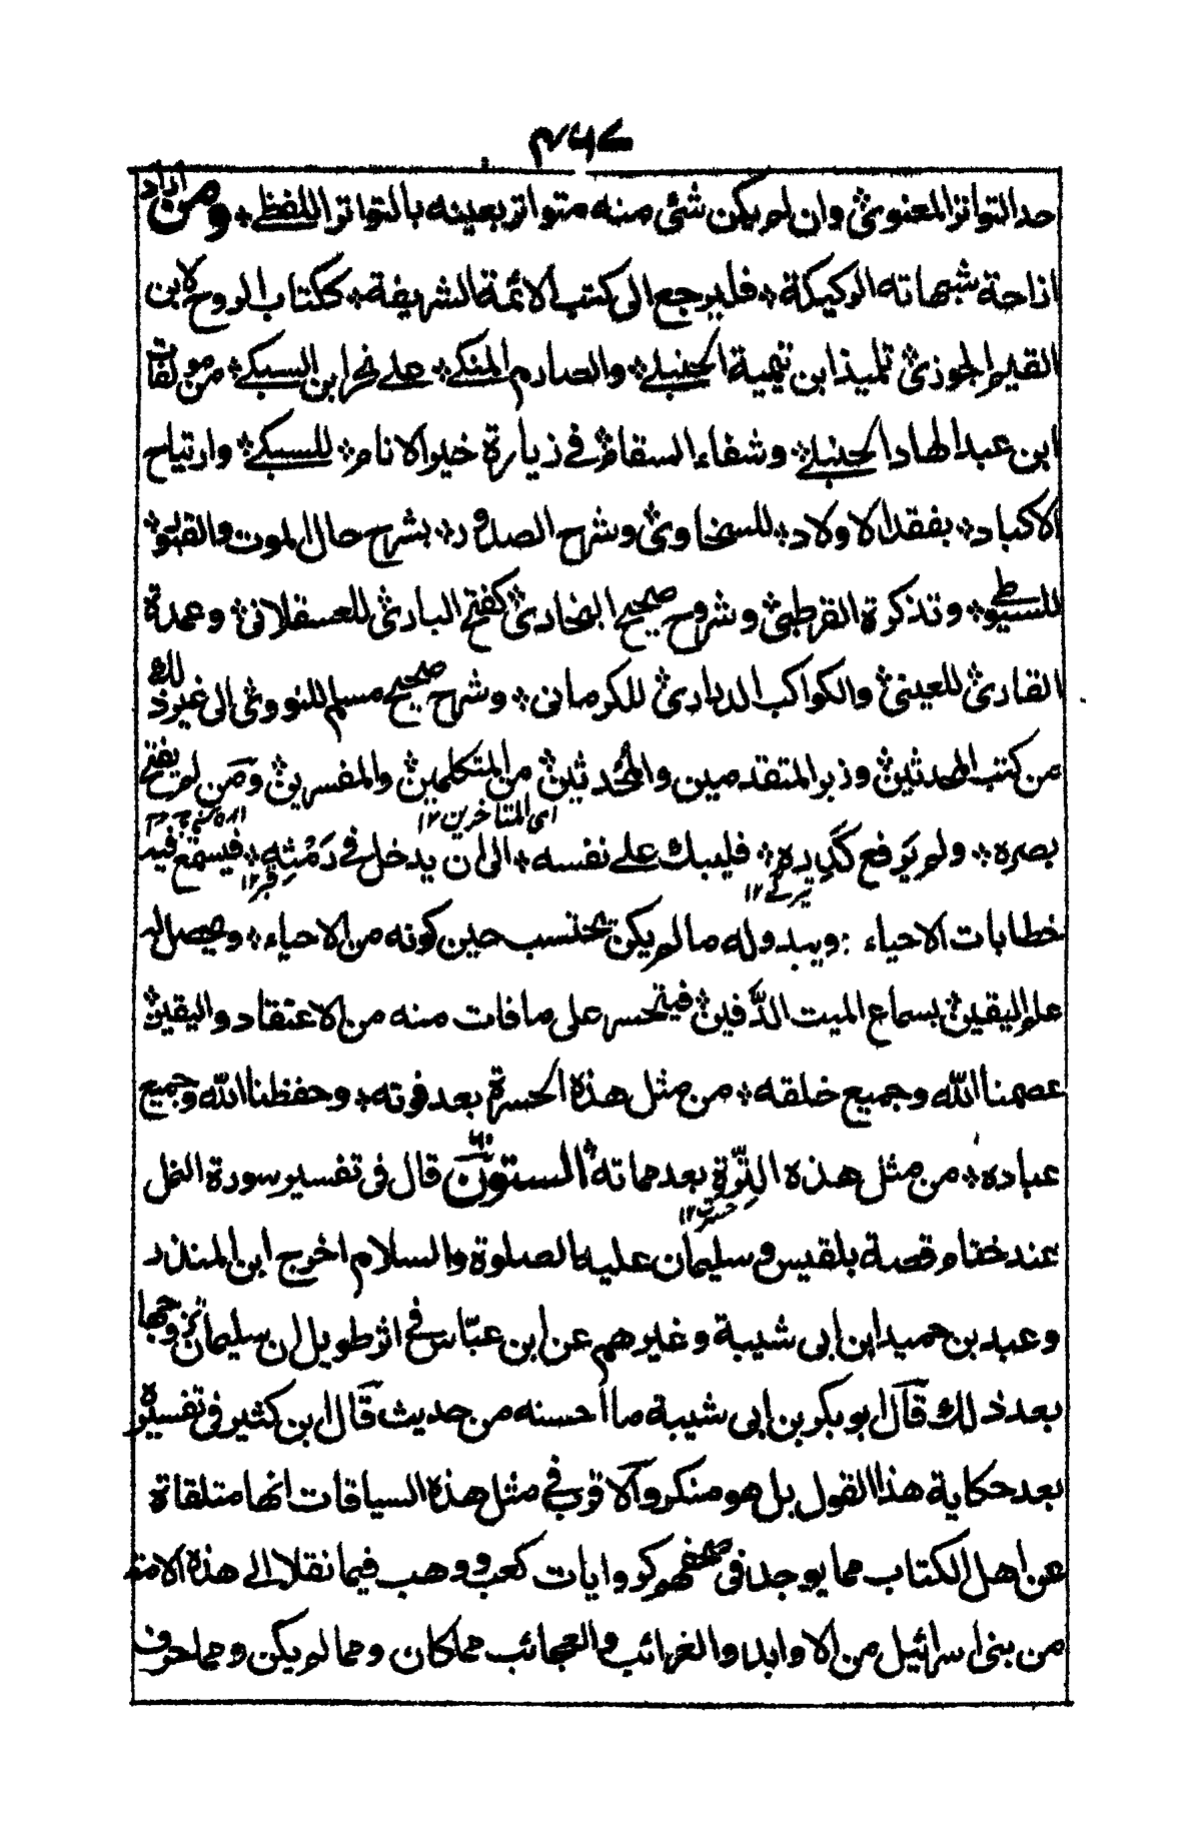 ۴۶۷
حد التواتر المعنوی؞ وان لم یکن شئ منه متواتر بعینه بالتواتر اللفظے؞ ومن اراد
ازاحة شبهاته الرکیکة؞ فلیرجع الی کتب الائمة الشریفة؞ ککتاب الروح لابن
القیم الجوزی؞ تلمیذ ابن تیمیة الحنبلے؞ والصارم المنکے؞ علے نحر ابن السبکے؞ من مولفات
ابن عبد الهاد الحنبلے؞ وشفاء السقام؞ فے زیارة خیر الانام؞ للسبکے؞ وارتیاح
الاکباد؞ بفقد الاولاد؞ للسخاوی؞ وشرح الصدور؞ بشرح حال الموت والقبور؞
للسیوطے؞ وتذکرة القرطبی؞ وشروح صحیح البخاری؞ کفتح الباری؞ للعسقلانی؞ وعمدة
القاری؞ للعینی؞ والکواکب الدراری؞ للکرمانی؞ وشرح صحیح مسلم للنووی؞ الی غیر ذلک؞
من کتب المحدثین؞ وزبر المتقدمین والمُحْدثین؞ من المتکلمین؞ والمفسرین؞ ومن لم یفتح
ای المتاخرین ۱۲
بصره؞ ولم یَرفع کَدِیده؞ فلیبک علے نفسه؞ الی ان یدخل فے رَمْسِه؞ فیسمع فیه
قبر ۱۲
خطابات الاحیاء؞ ویبدو له ما لم یکن یحتسب حین کونه من الاحیاء؞ ویحصل له
علم الیقین؞ بسماع المیت الدَّفین؞ فیتحسر علی ما فات منه من الاعتقاد والیقین؞
عصمنا الله وجمیع خلقه؞ من مثل هذه الحسرة بعد فوته؞ وحفظنا الله وجمیع
عباده؞ من مثل هذه التِّرَّةِ بعد مماته؞ الستون ۶۰ قال فی تفسیر سورة النمل
حسرت ۱۲
عند ختام قصة بلقیس وسلیمان علیه الصلوة والسلام اخرج ابن المنذر
وعبد بن حمید ابن ابی شیبة وغیرهم عن ابن عبّاس فے اثر طویل ان سلیمان تزوجها
بعد ذلک قال ابو بکر بن ابی شیبة ما احسنه من حدیث قال ابن کثیر فی تفسیره
بعد حکایة هذا القول بل هو منکر والاقرب فے مثل هذه السیاقات انها متلقاة
عن اهل الکتاب مما یوجد فی صحفهم کروایات کعب ووهب فیما نقلا الی هذه الامة
من بنی اسرائیل من الاوابد والغرائب والعجائب مما کان ومما لم یکن ومما حرف